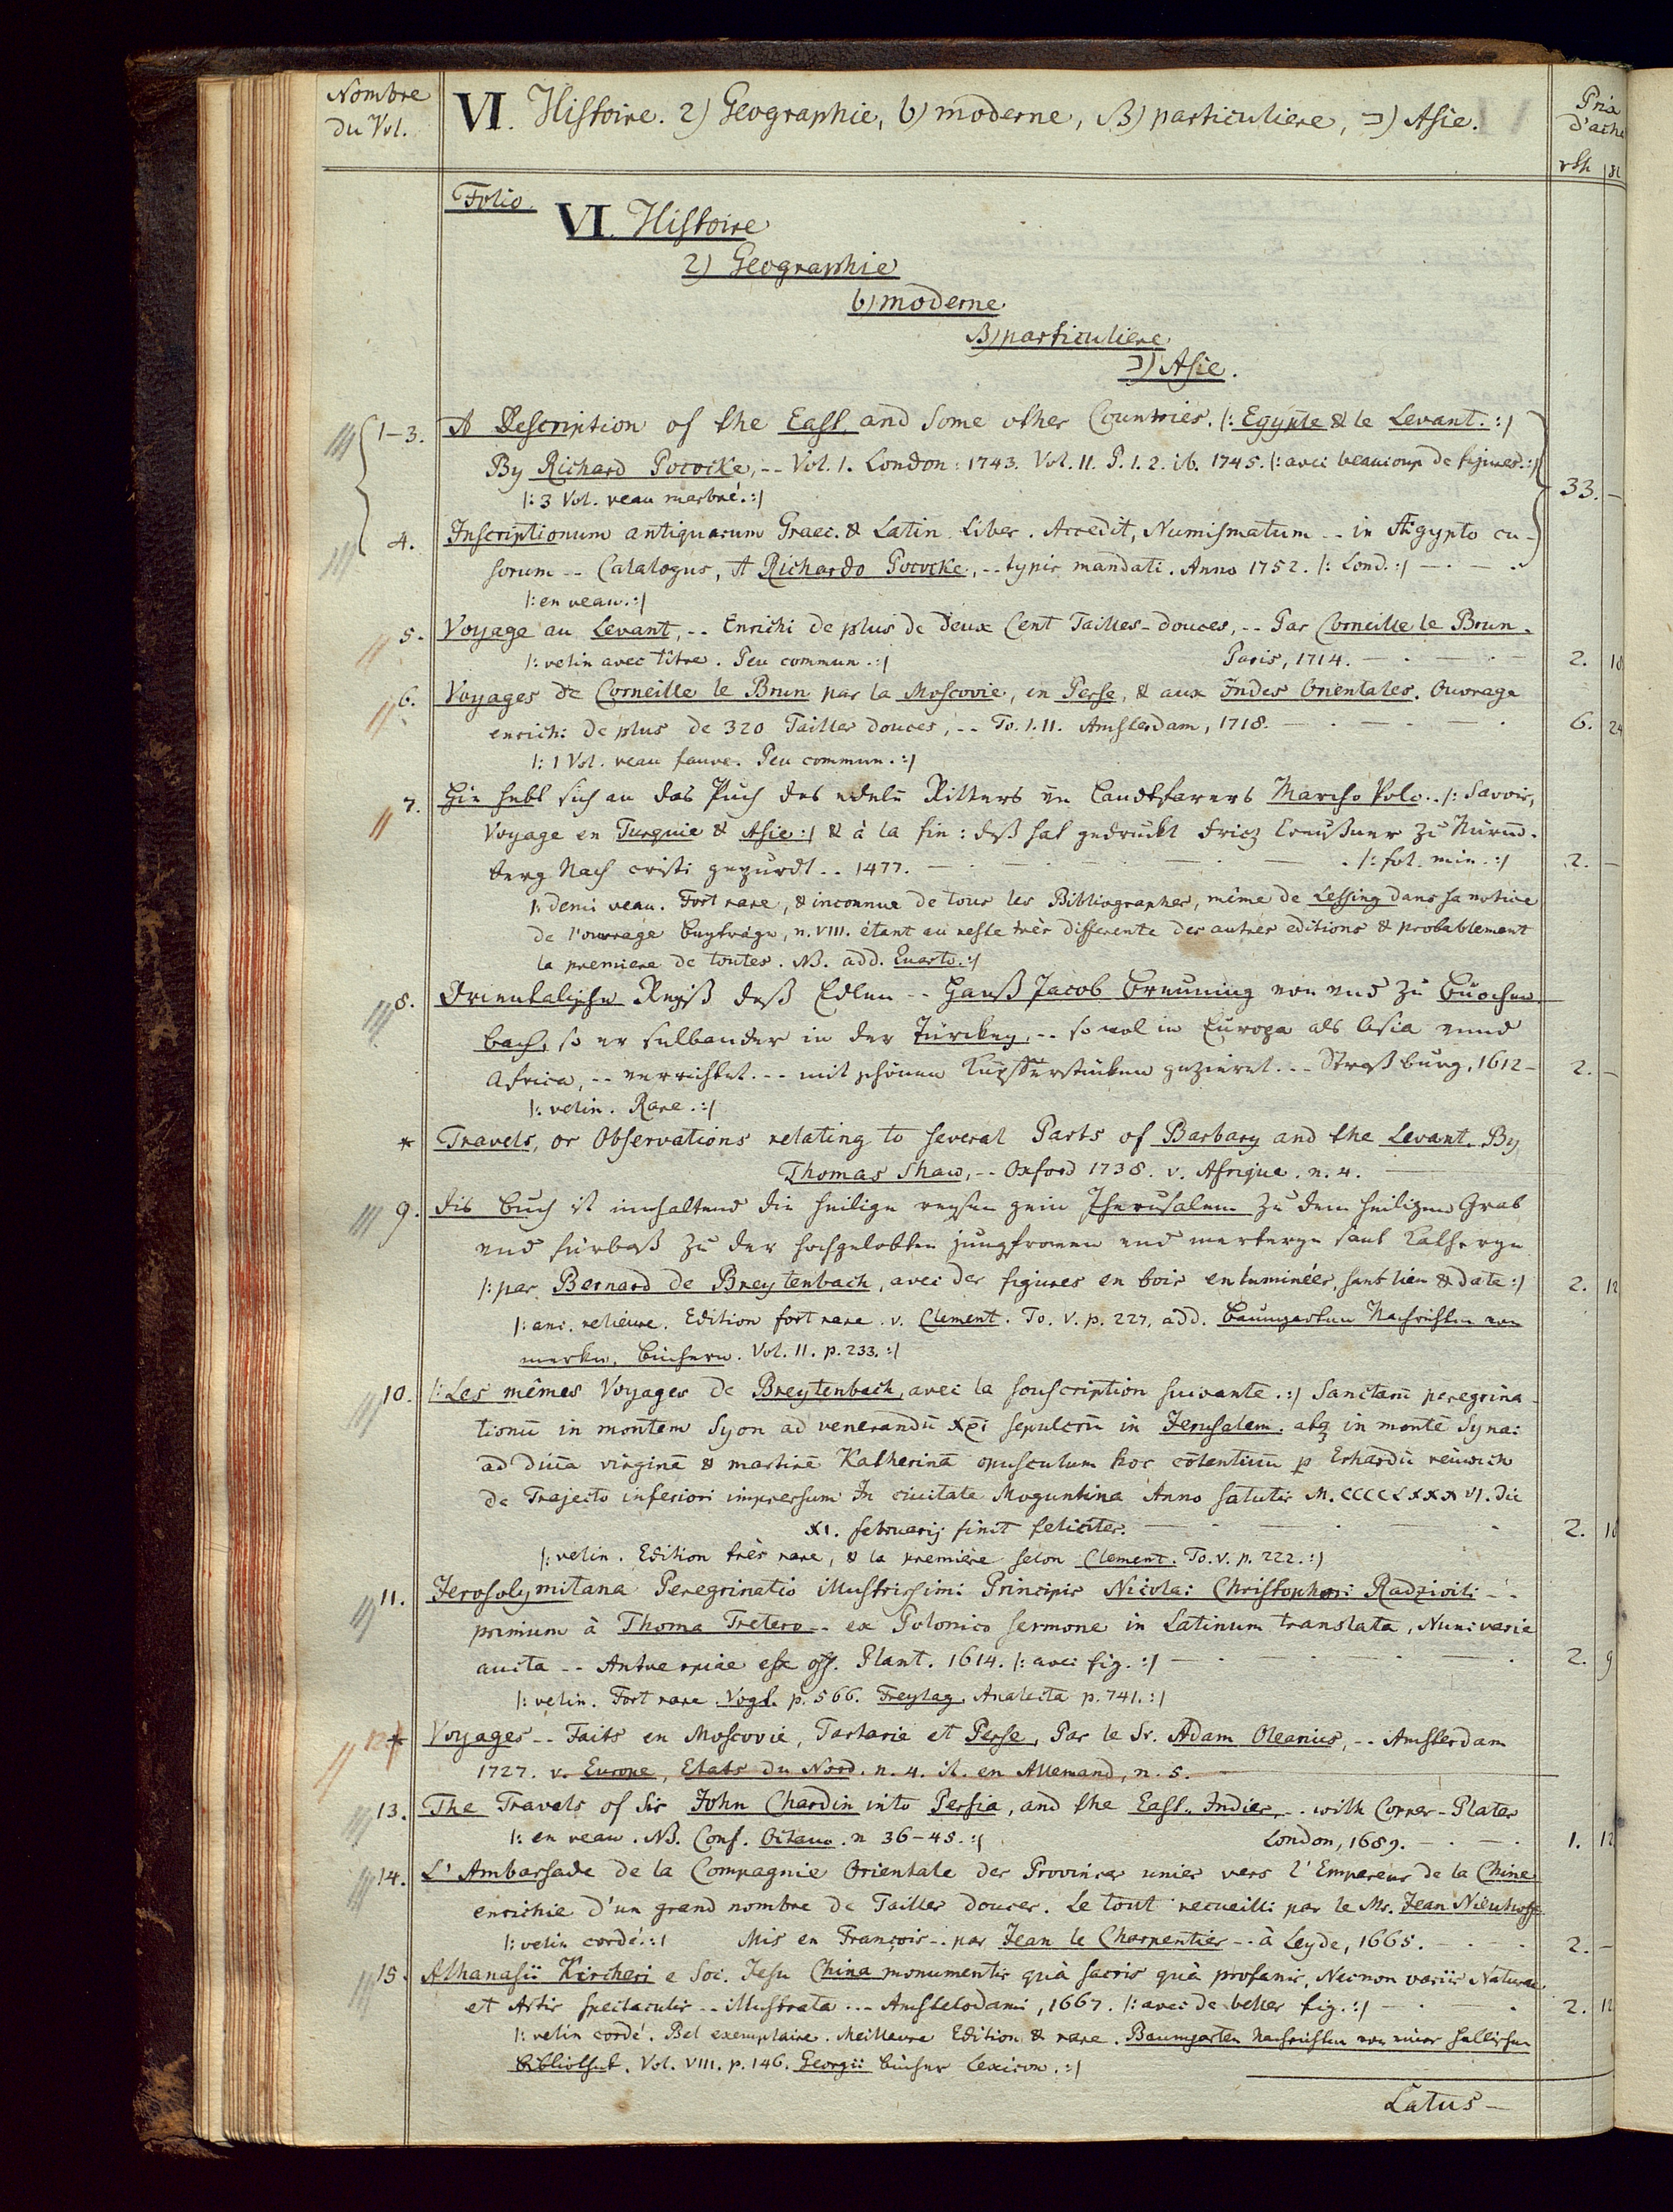 Nombre du Vol.
VI. Histoire. 2) Geographie, b) moderne, β) particuliere, ב) Asie.
Prix d'ach
rth
Folio.
VI. Histoire
2) Geographie
b) moderne
β) particuliere
ב) Asie.
1-3. A Description of the East, and Some other Countries. |: Egypte & le Levant. :|
By Richard Pococke, -- Vol. 1. London: 1743. Vol. II. P. 1. 2. ib. 1745. |: avec beaucoup de figures. :| 33. —
|: 3 Vol. veau marbré. :|
4. Inscriptionum antiquarum Graec. & Latin. Liber. Accedit, Numismatum -- in Ægypto cu-
sorum -- Catalogus, A Richardo Pococke, -- typis mandati. Anno 1752. |: Lond. :| — . — .
|: en veau. :|
5. Voyage au Levant, -- Enrichi de plus de deux Cent Tailles-douces, -- Par Corneille le Brun.
|: velin avec titre. Peu commun. :| Paris, 1714. — . — . — 2. 18
6. Voyages de Corneille le Brun par la Moscovie, en Perse, & aux Indes Orientales. Ouvrage
enrichi de plus de 320 Tailles douces, -- To. I. II. Amsterdam, 1718. — . — . — . 6. 24
|: 1 Vol. veau fauve. Peu commun. :|
7. Hie hebt sich an das Puch des edeln Ritters vn Landtfarers Marcho Polo. . |: Savoir,
Voyage en Turquie & Asie :| & à la fin: deß hat gedruckt Fricz Creußner zu Nürm-
berg Nach cristi gepurdt . . 1477. — . — . — . — . |: fol. min. :| 2. —
|: demi veau. Fort rare, & inconnue de tous les Bibliographes, même de Lessing dans sa notice
de l'ouvrage Beyträge, n. VIII. étant au reste très differente des autres editions & probablement
la premiere de toutes. NB. add. Quarto. :|
8. Orientalische Reyß deß Edlen -- Hanß Jacob Breuning von vnd zu Buochen-
bach, so er selbander in der Türckey, -- sowol in Europa als Asia vnnd
Africa, -- verrichtet. -- mit schönen Kupfferstücken gezieret. -- Straßburg, 1612 — 2. —
|: velin. Rare. :|
* Travels, or Observations relating to several Parts of Barbary and the Levant. By
Thomas Shaw, -- Oxford 1738. v. Afrique. n. 4. —
9. Dis buch ist innhaltend die heilige reysen gein Jherusalem zu dem heiligen Grab
vnd fürbaß zu der hochgelobten jungfrowen vnd merteryn sant Katheryn
|: par Bernard de Breytenbach, avec des figures en bois enluminées, sans lieu & date :| 2. 12
|: anc. relieure. Edition fort rare. v. Clement. To. V. p. 227. add. Baumgarten Nachrichten von
merkw. Büchern. Vol. II. p. 233. :|
10. |: Les mêmes Voyages de Breytenbach, avec la souscription suivante. :| Sanctarū peregrina-
tionū in montem Syon ad venerandū xpi sepulcrū in Jerusalem. atq in montē Synai
ad diuā virginē & martirē Katherinā opusculum hoc cōtentiuū p Erhardū reüwich
de Trajecto inferiori impressum In ciuitate Moguntina Anno salutis M.CCCCLXXXVI. die
XI. februarij finit feliciter. — . — . — . 2. 18
|: velin. Edition très rare, & la première selon Clement. To. V. p. 222. :|
11. Jerosolymitana Peregrinatio illustrissimi Principis Nicolai Christophori Radzivili --
primum à Thoma Tretero -- ex Polonico sermone in Latinum translata, Nunc varie
aucta -- Antverpiae ex off. Plant. 1614. |: avec fig. :| — . — . — 2. 9
|: velin. Fort rare. Vogt. p. 566. Freytag. Analecta p. 741. :|
12 * Voyages -- Faits en Moscovie, Tartarie et Perse, Par le Sr. Adam Olearius, -- Amsterdam
1727. v. Europe, Etats du Nord. n. 4. it. en Allemand, n. 5. —
13. The Travels of Sir John Chardin into Persia, and the East-Indies, -- with Copper-Plates
|: en veau. NB. Conf. Octavo. n 36-45. :| London, 1689. — . — . 1. 12
14. L'Ambassade de la Compagnie Orientale des Provinces unies vers l'Empereur de la Chine
enrichie d'un grand nombre de Tailles douces. Le tout recueilli par le Mr. Jean Nieuhoff
|: velin cordé. :| Mis en François -- par Jean le Charpentier -- à Leyde, 1665. . — . 2. —
15. Athanasii Kircheri e Soc. Jesu China monumentis quà sacris quà profanis, Necnon variis Naturae
et Artis spectaculis -- illustrata -- Amstelodami, 1667. |: avec de belles fig. :| — . — . 2. 12
|: velin cordé. Bel exemplaire. Meilleure Edition & rare. Baumgarten Nachrichten von einer hallischen
Bibliothek. Vol. VIII. p. 146. Georgii Bücher Lexicon. :|
Latus —